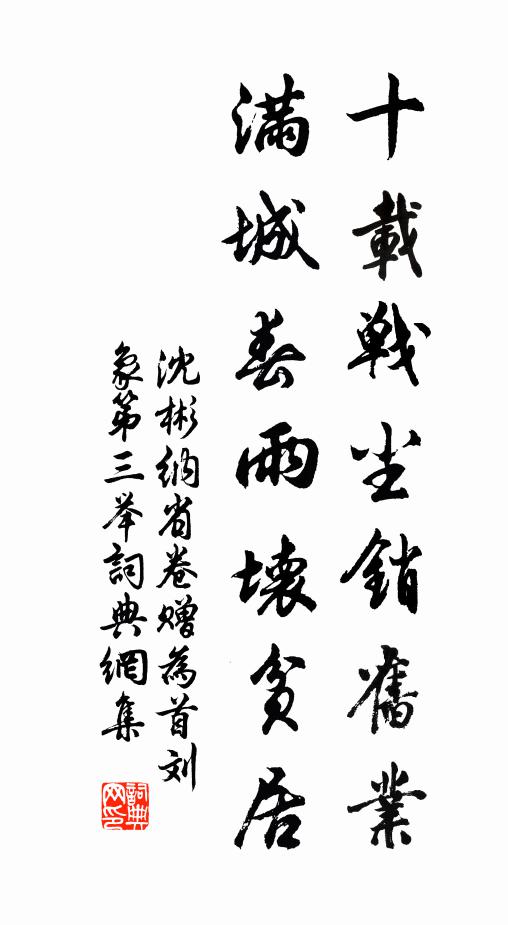 十載戰尘銷舊業
滿城春雨壞貧居
沈彬纳省卷赠為首刘
象第三举詞典網集
詞典网印